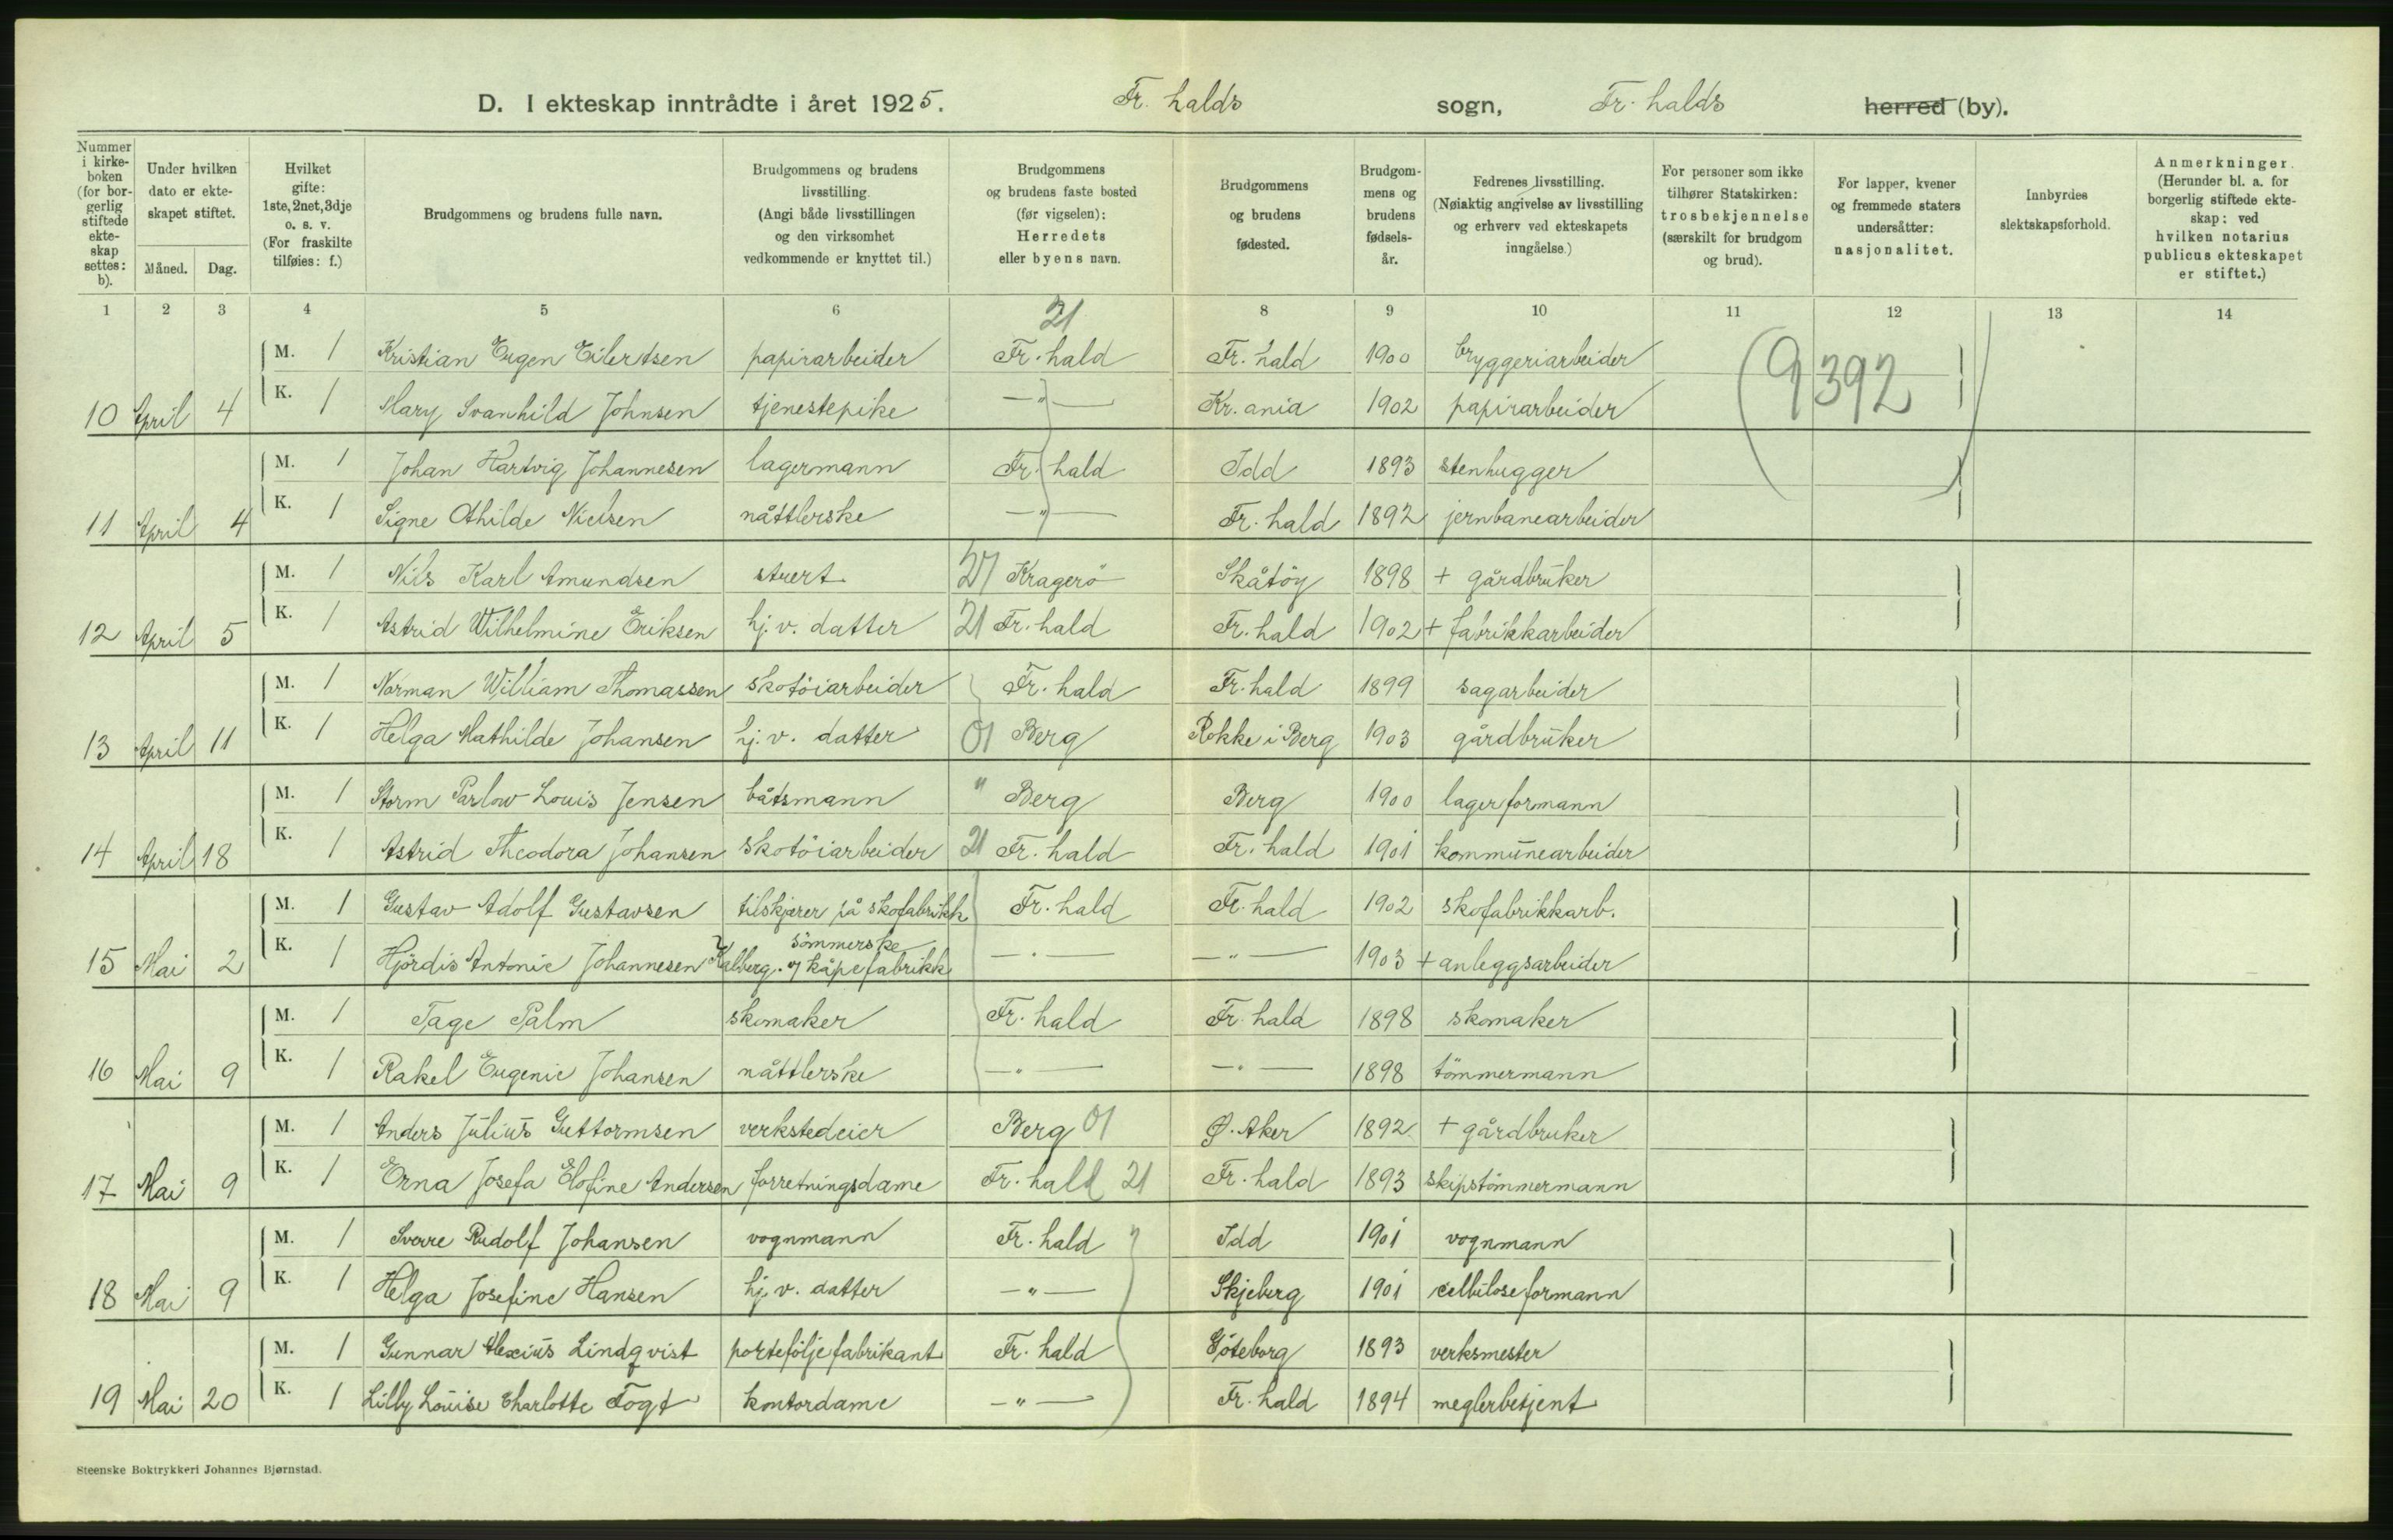 D. I ekteskap inntrådte i året 1925. Fr. halds sogn, Fr. halds herred (by).
Nummer i kirkeboken (for borgerlig stiftede ekteskap settes: b).
Under hvilken dato er ekteskapet stiftet.
Måned. Dag.
Hvilket gifte: 1ste, 2net, 3dje o. s. v. (For fraskilte tilføies: f.)
Brudgommens og brudens fulle navn.
Brudgommens og brudens livsstilling. (Angi både livsstillingen og den virksomhet vedkommende er knyttet til.)
Brudgommens og brudens faste bosted (før vigselen): Herredets eller byens navn.
Brudgommens og brudens fødested.
Brudgommens og brudens fødselsår.
Fedrenes livsstilling. (Nøiaktig angivelse av livsstilling og erhverv ved ekteskapets inngåelse.)
For personer som ikke tilhører Statskirken: trosbekjennelse (særskilt for brudgom og brud).
For lapper, kvener og fremmede staters undersåtter: nasjonalitet.
Innbyrdes slektskapsforhold.
Anmerkninger. (Herunder bl. a. for borgerlig stiftede ekteskap: ved hvilken notarius publicus ekteskapet er stiftet.)
1 2 3 4 5 6 21 8 9 10 11 12 13 14
M. 1 Kristian Eugen Eilertsen papirarbeider Fr. hald Fr. hald 1900 bryggeriarbeider (9392)
10 April 4 K. 1 Mary Svanhild Johnsen tjenestepike —"— Kr.ania 1902 papirarbeider
M. 1 Johan Hartvig Johannesen lagermann Fr. hald Idd 1893 stenhugger
11 April 4 K. 1 Signe Othilde Nielsen nåttlerske —"— Fr. hald 1892 jernbanearbeider
M. 1 Nils Karl Amundsen stuert 27 Kragerö Skåtöy 1898 + gårdbruker
12 April 5 K. 1 Astrid Wilhelmine Eriksen hj. v. datter 21 Fr. hald Fr. hald 1902 + fabrikkarbeider
M. 1 Norman William Thomassen skotöiarbeider Fr. hald Fr. hald 1899 sagarbeider
13 April 11 K. 1 Helga Mathilde Johansen hj. v. datter 01 Berg Rokke i Berg 1903 gårdbruker
M. 1 Storm Parlow Louis Jensen båtsmann " Berg Berg 1900 lagerformann
14 April 18 K. 1 Astrid Theodora Johansen skotöiarbeider 21 Fr. hald Fr. hald 1901 kommunearbeider
M. 1 Gustav Adolf Gustavsen tilskjærer på skofabrikk Fr. hald Fr. hald 1902 skofabrikkarb.
sömmerske
15 Mai 2 K. 1 Hjördis Antonie Johannesen Kalberg. kåpefabrikk —"— —"— 1903 + anleggsarbeider
M. 1 Tage Palm skomaker Fr. hald Fr. hald 1898 skomaker
16 Mai 9 K. 1 Rakel Eugenie Johansen nåttlerske —"— —"— 1898 tömmermann
M. 1 Anders Julius Guttormsen verkstedeier Berg 01 Ø. Aker 1892 + gårdbruker
17 Mai 9 K. 1 Erna Josefa Elofine Andersen forretningsdame Fr. hald 21 Fr. hald 1893 skipstömmermann
M. 1 Sverre Rudolf Johansen vognmann Fr. hald Idd 1901 vognmann
18 Mai 9 K. 1 Helga Josefine Hansen hj. v. datter —"— Skjeberg 1901 celluloseformann
M. 1 Gunnar Alexius Lindqvist porteföljefabrikant Fr. hald Göteborg 1893 verksmester
19 Mai 20 K. 1 Lilly Louise Charlotte Fogt kontordame —"— Fr. hald 1894 meglerbetjent
Steenske Boktrykkeri Johannes Bjørnstad.